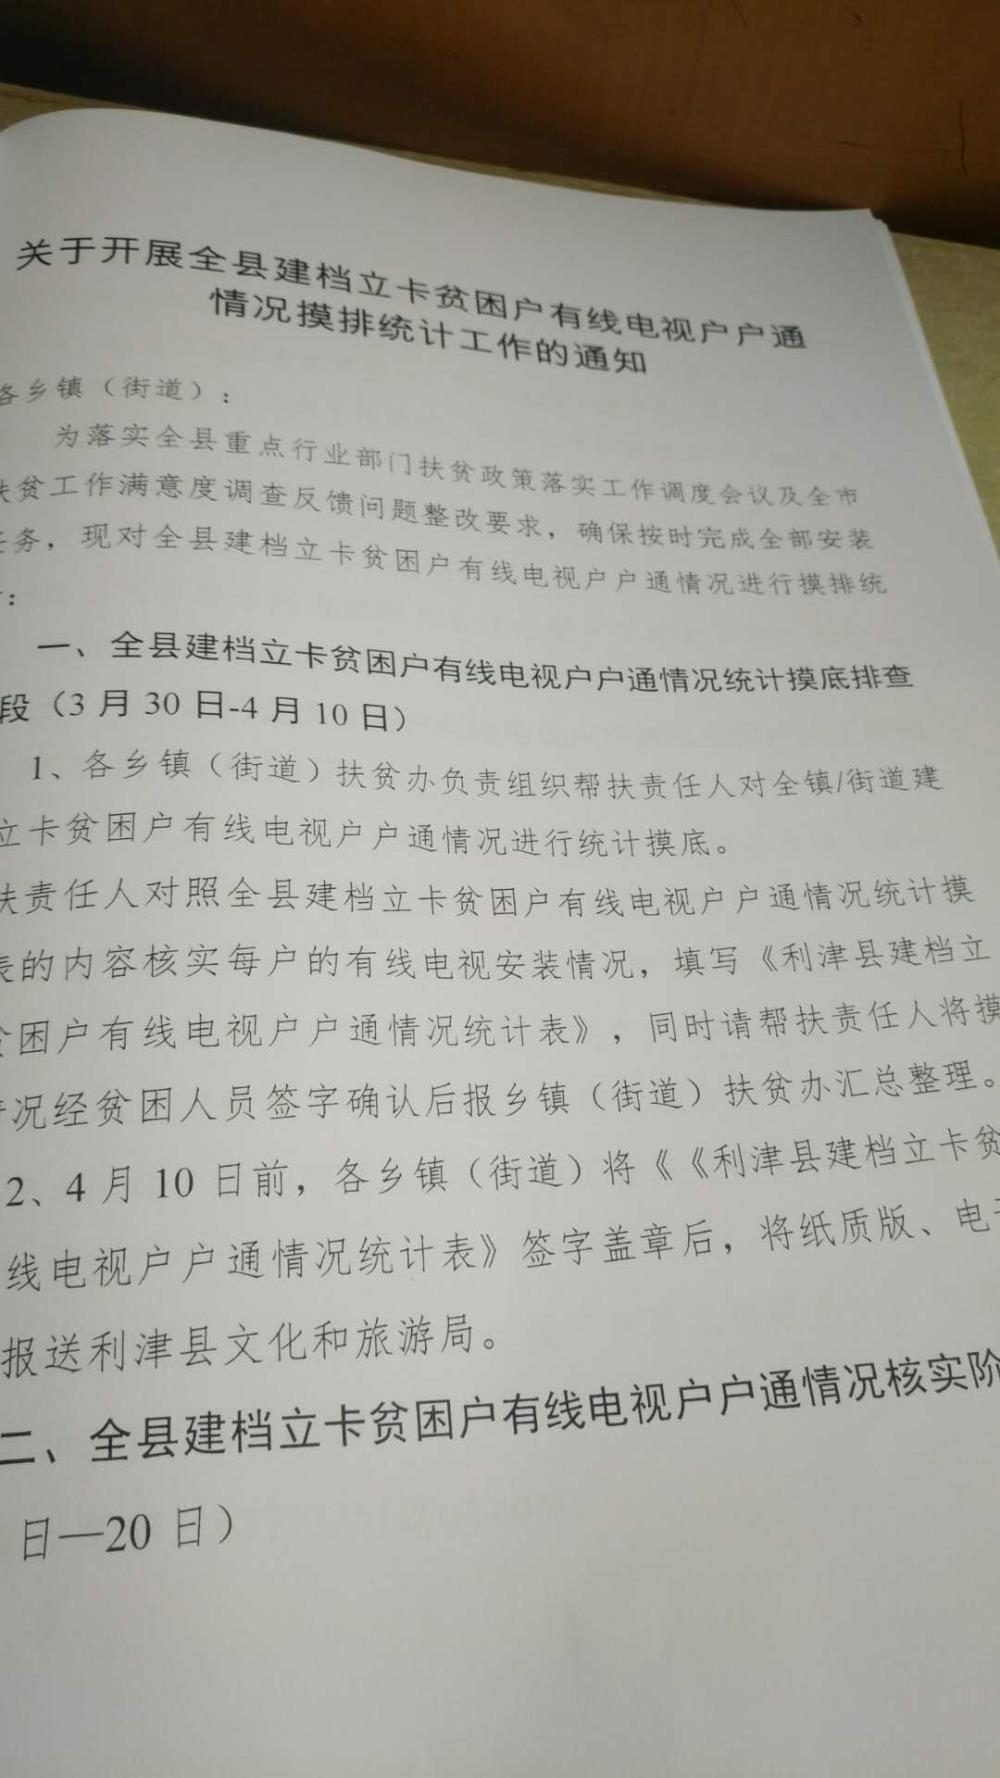 关于开展全县建档立卡贫困户有线电视户户通
情况摸排统计工作的通知
各乡镇（街道）：
为落实全县重点行业部门扶贫政策落实工作调度会议及全市
扶贫工作满意度调查反馈问题整改要求，确保按时完成全部安装
任务，现对全县建档立卡贫困户有线电视户户通情况进行摸排统
：
一、全县建档立卡贫困户有线电视户户通情况统计摸底排查
段（3月30日-4月10日）
1、各乡镇（街道）扶贫办负责组织帮扶责任人对全镇/街道建
立卡贫困户有线电视户户通情况进行统计摸底。
扶责任人对照全县建档立卡贫困户有线电视户户通情况统计摸
表的内容核实每户的有线电视安装情况，填写《利津县建档立
贫困户有线电视户户通情况统计表》，同时请帮扶责任人将摸
情况经贫困人员签字确认后报乡镇（街道）扶贫办汇总整理。
2、4月10日前，各乡镇（街道）将《《利津县建档立卡贫
线电视户户通情况统计表》签字盖章后，将纸质版、电子
报送利津县文化和旅游局。
二、全县建档立卡贫困户有线电视户户通情况核实阶
日—20日）